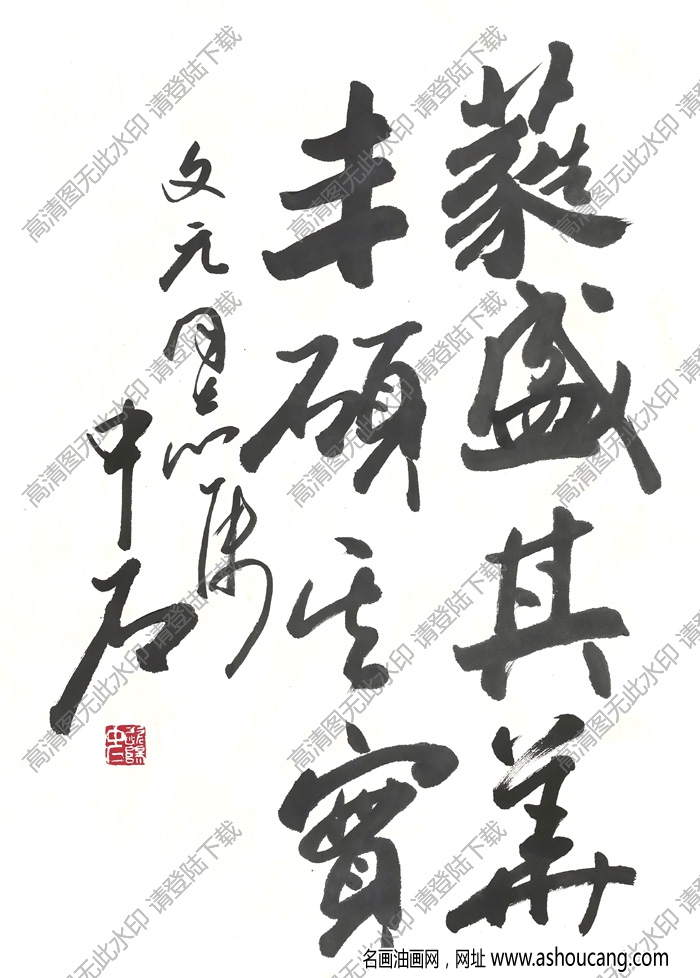 蕤盛其華
丰碩其實
文元同志属
中石
高清图无此水印 请登陆下载
名画油画网，网址 www.ashoucang.com